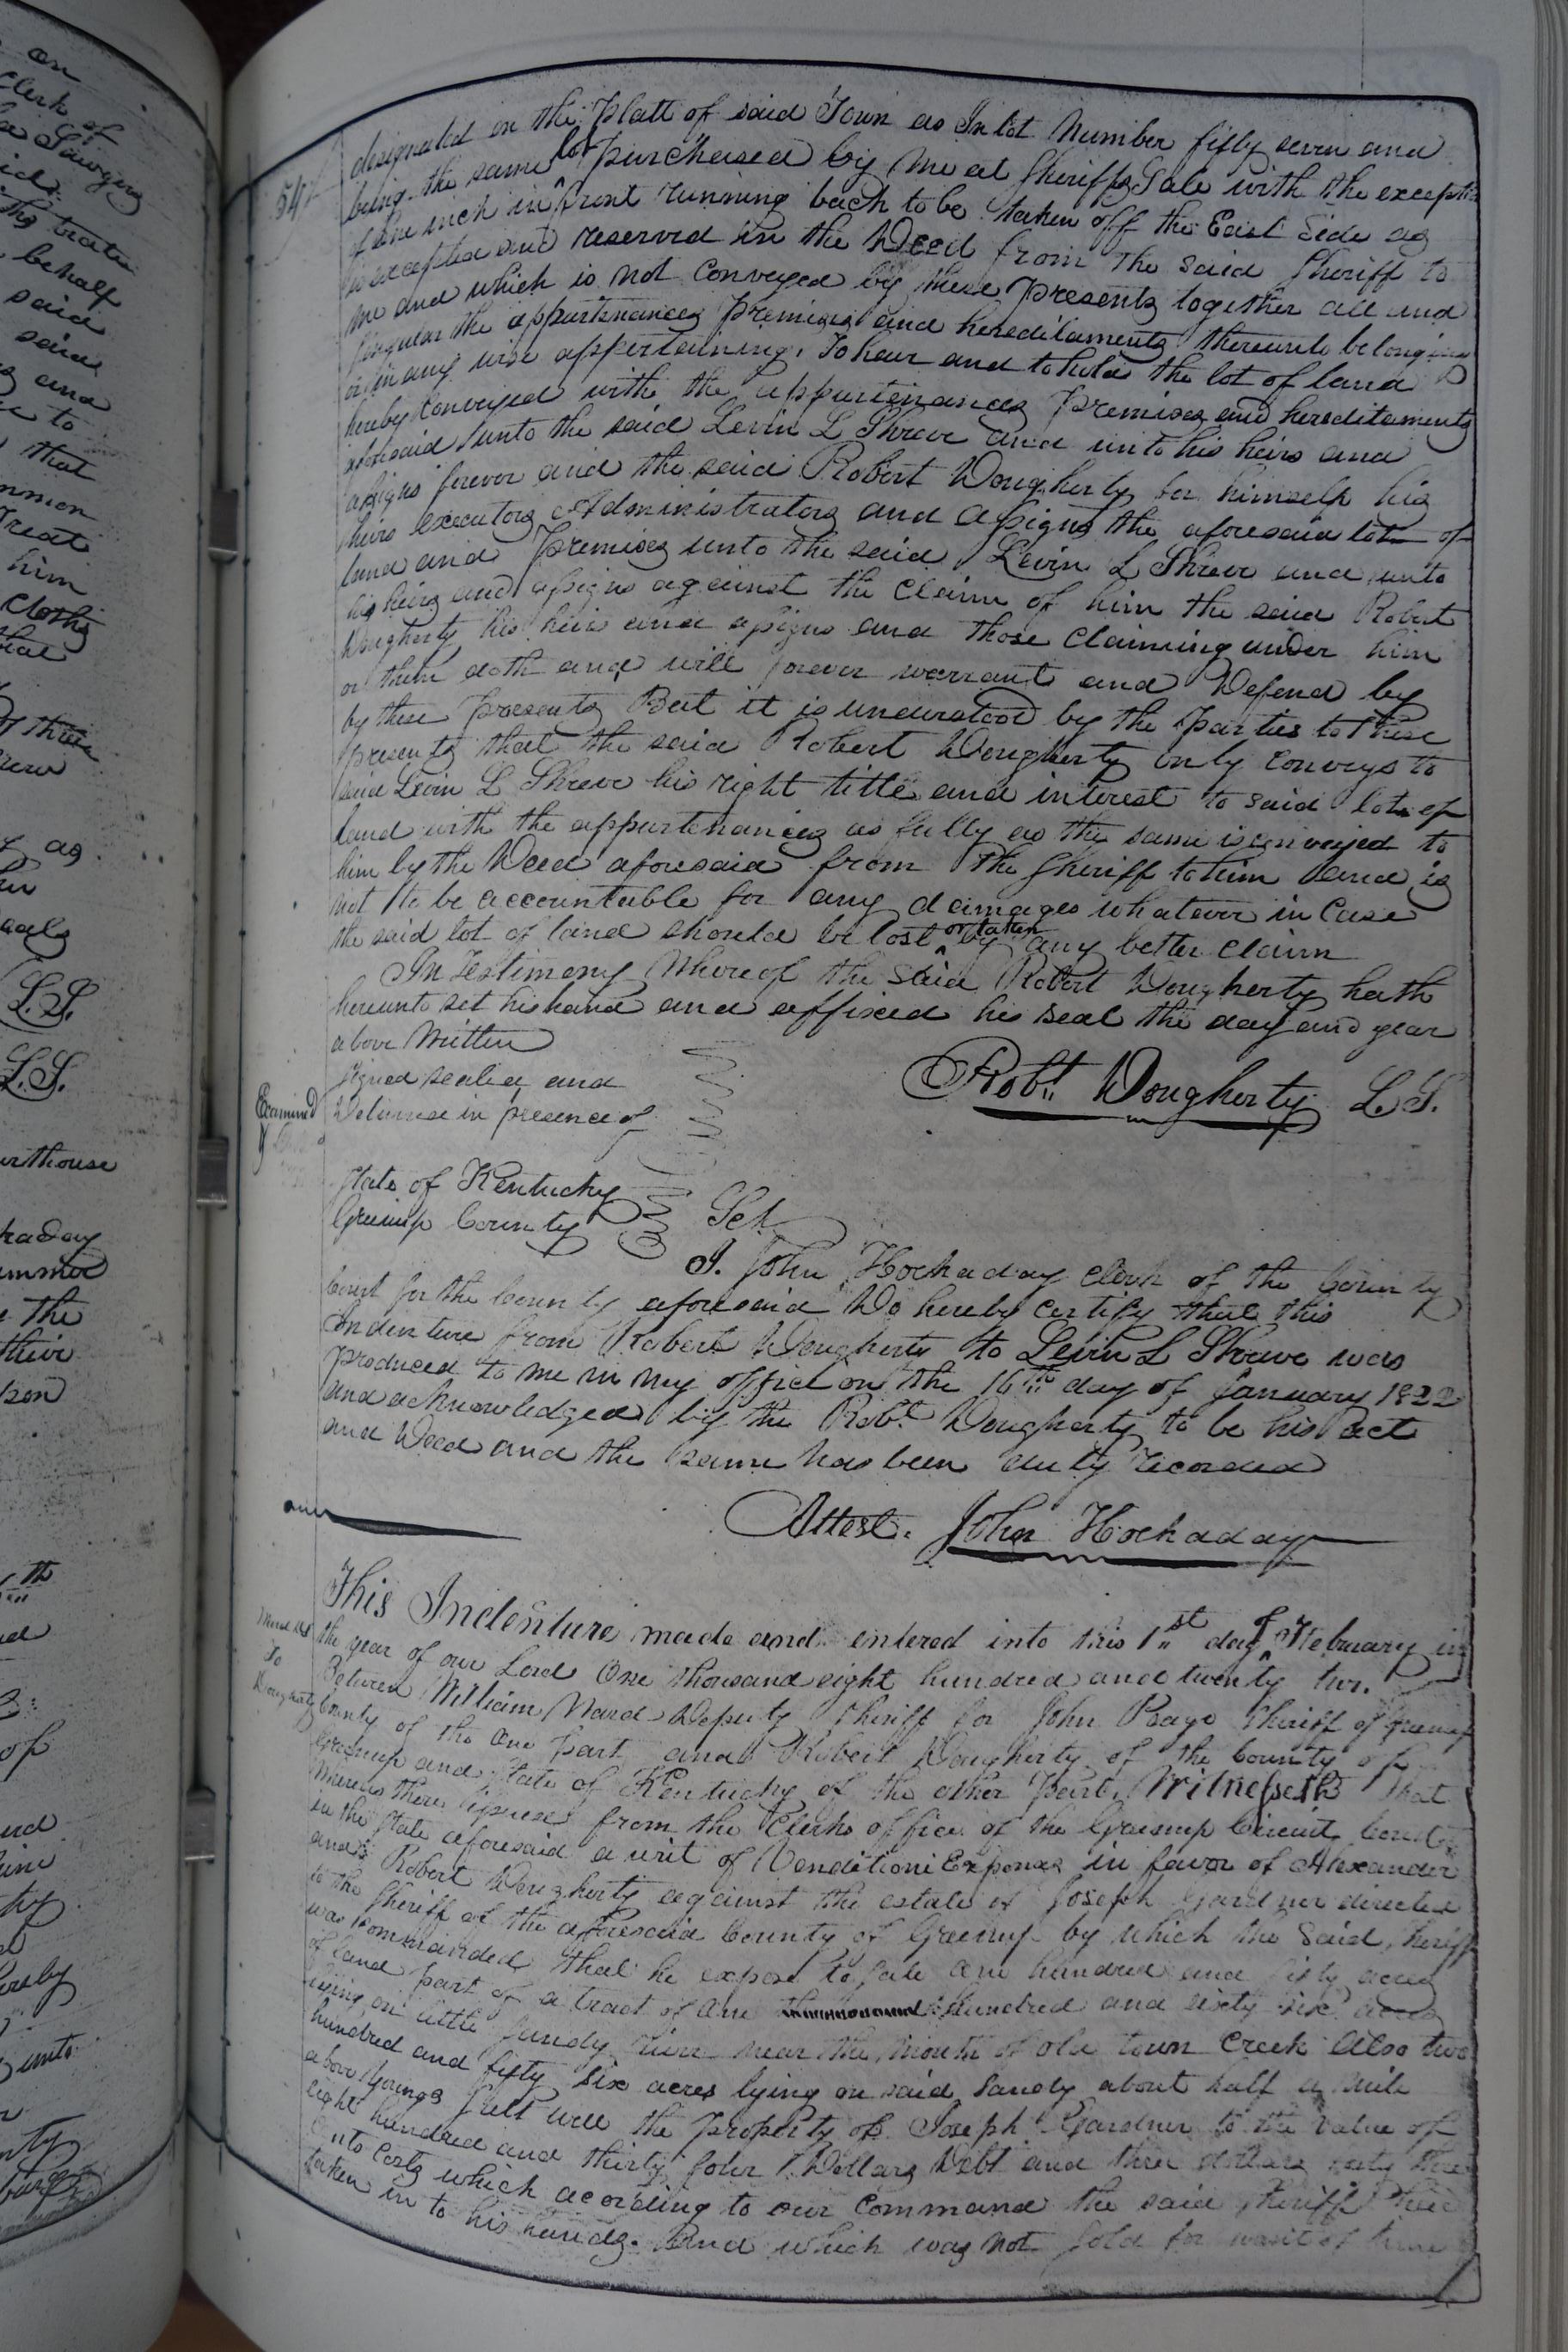 54
designated on the Platt of said Town as In lot Number fifty seven and
being the same lot purchased by me at Sheriffs Sale with the exceptio
of one inch in front running back to be taken off the East Side as
is excepted and reserved in the Deed from the said Sheriff to
me and which is not conveyed by these presents together all and
singular the appurtenances premises and hereditaments thereunto belonging
or in any wise appertaining. To have and to hold the lot of land
hereby Conveyed with the appurtenances premises and hereditaments
aforesaid unto the said Levin L Shreve and unto his heirs and
assigns forever and the said Robert Dougherty for himself his
heirs executors Administrators and assigns the aforesaid lot of
land and Premises unto the said Levin L Shreve and unto
his heirs and assigns against the Claim of him the said Robert
Dougherty his heirs and assigns and those Claiming under him
or them doth and will forever warrant and Defend by
by these presents But it is understood by the parties to these
presents that the said Robert Dougherty only Conveys to
said Levin L Shreve his right title and interest to said lot of
land with the appurtenances as fully as the same is conveyed to
him by the Deed aforesaid from the Sheriff to him and is
not to be accountable for any damages whatever in Case
the said lot of land should be lost or taken by any better claim
In Testimony Whereof the said Robert Dougherty hath
hereunto set his hand and affixed his seal the day and year
above Written
Signed sealed and
Delivered in presence of
Robt. Dougherty L.S.
Examined
State of Kentucky
Greenup County Sct
I. John Hockaday Clerk of the County
Court for the County aforesaid Do hereby certify that this
Indenture from Robert Dougherty to Levin L Shreve was
produced to me in my office on the 16th day of January 1822
and acknowledged by the Robt. Dougherty to be his act
and Deed and the same has been duly recorded
Attest. John Hockaday
This Indenture made and entered into this 1st day of February in
the year of our Lord One thousand eight hundred and twenty two.
To
Between William Ward Deputy Sheriff for John Page Sheriff of Greenup
Dougherty
County of the one part and Robert Dougherty of the County of
Greenup and State of Kentucky of the other Part. Witnesseth That
Whereas there issued from the Clerks office of the Greenup Circuit Court
in the State aforesaid a writ of Venditioni Exponas in favor of Alexander
and Robert Dougherty against the estate of Joseph Gardner directed
to the Sheriff of the aforesaid County of Greenup by which the Said Sheriff
was commanded that he expose to sale one hundred and sixty acres
of land part of a tract of one hundred and sixty six acres
lying on little Sandy river near the mouth of old town Creek Also two
hundred and fifty six acres lying on said Sandy about half a mile
above Youngs Salt well the property of Joseph Gardner to the value of
eight hundred and thirty four Dollars Debt and three dollars sixty three
Cents Costs which according to our command the said Sheriff
taken in to his hands. And which was not sold for want of time